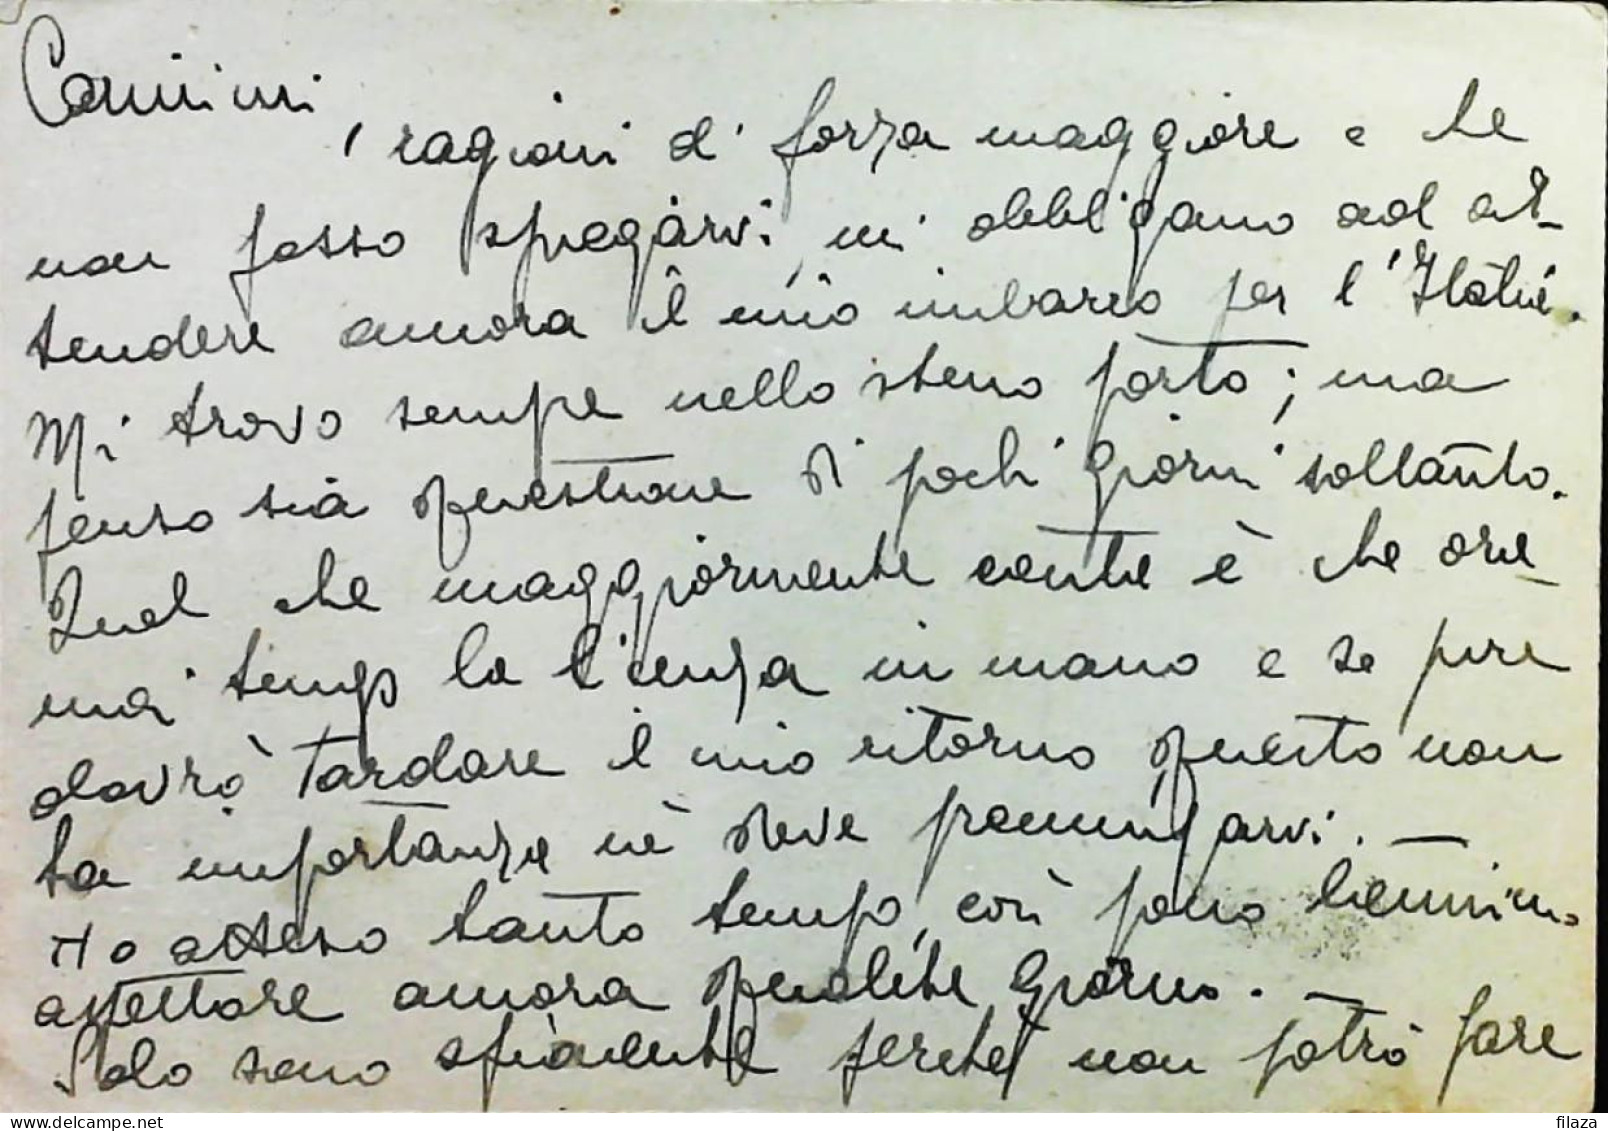 Carissimi
, ragioni di forza maggiore e che
non posso spiegarvi, mi obbligano ad at-
tendere ancora il mio imbarco per l'Italia.
Mi trovo sempre nello stesso porto; ma
penso sia questione di pochi giorni soltanto.
Quel che maggiormente conta è che or-
mai tengo la licenza in mano e se pure
dovrò tardare il mio ritorno questo non
ha importanza nè deve
Ho atteso tanto tempo, così posso benissimo
aspettare ancora qualche giorno. —
Solo sono spiacente perchè non potrò fare
filaza